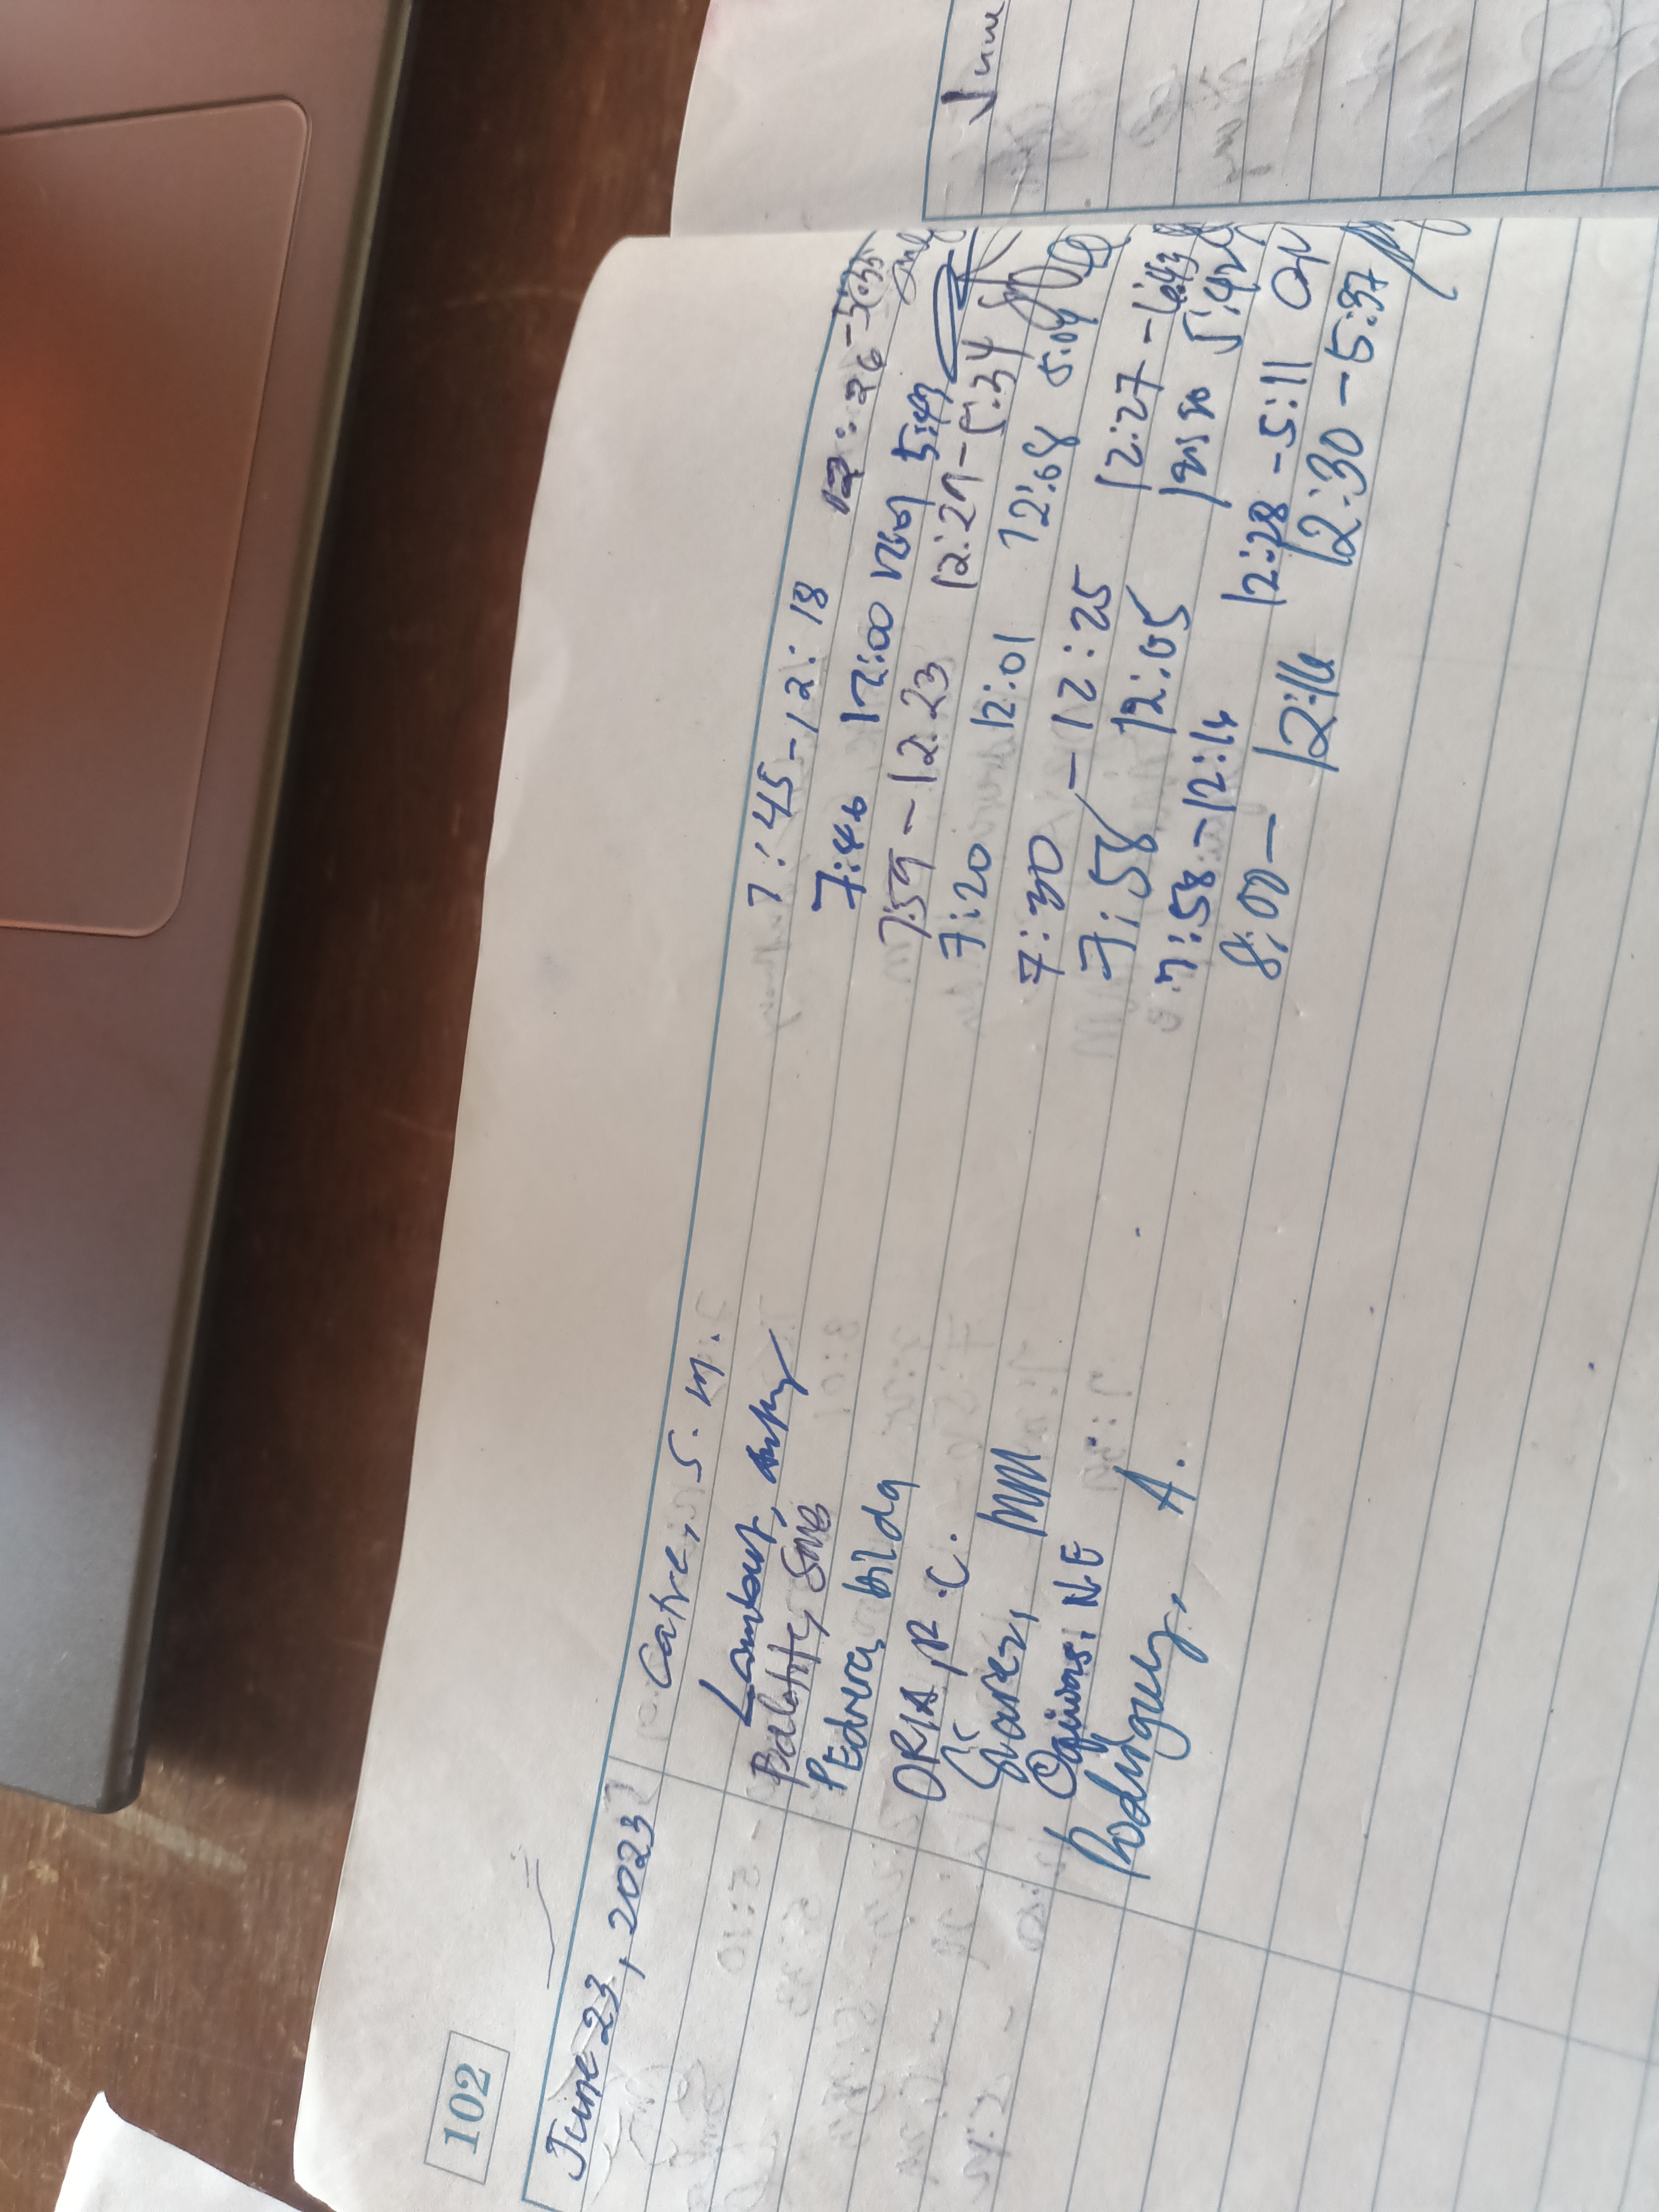 102
June 23, 2023
Catre, S. M. 7:45-12:18 12:26-5:35
Lambout, 7:46 12:00 5:49
SMB 7:59-12:23 12:29-5:34
Pedrera, hilda 7:20 12:01 12:08 5:04
ORIA, R.C. 7:30 - 12:25 12:27-6:43
Suarez, MM 7:58 12:05 12:30 5:42
NE 7:58-12:14 12:28-5:11
Rodriguez, A. 8:00- 12:16 12:30-5:37
June